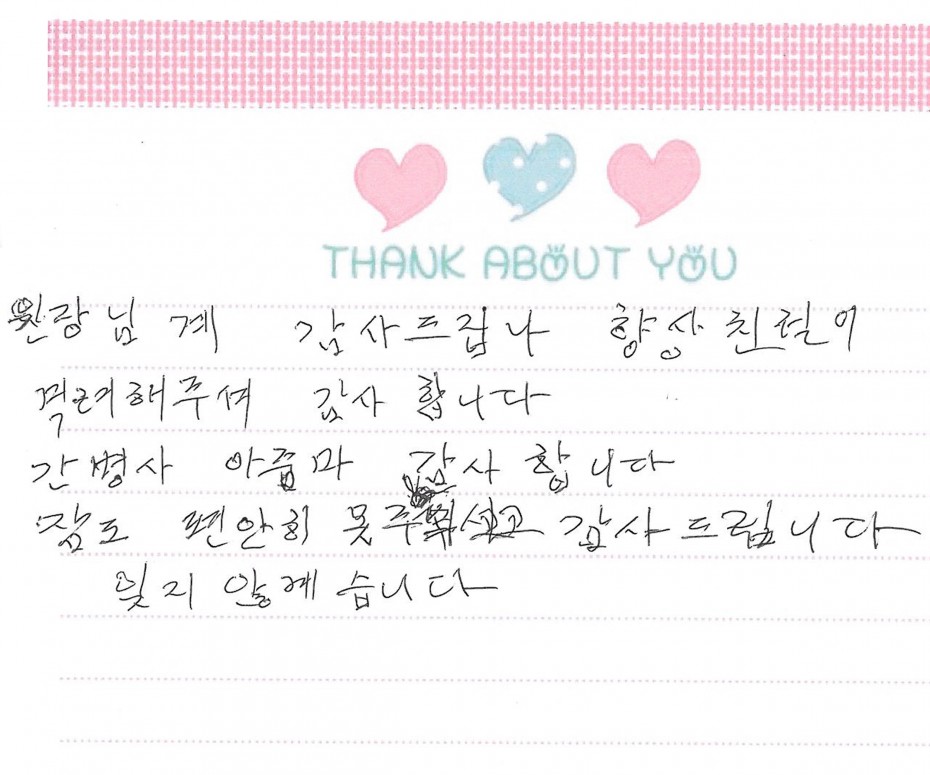 THANK ABOUT YOU
원장님 계 감사드립나 향상 친절이
격려해주셔 감사 합니다
간병사 아줌마 감사 합니다
잠도 편안히 못주무시고 감사드립니다
잊지 않게습니다